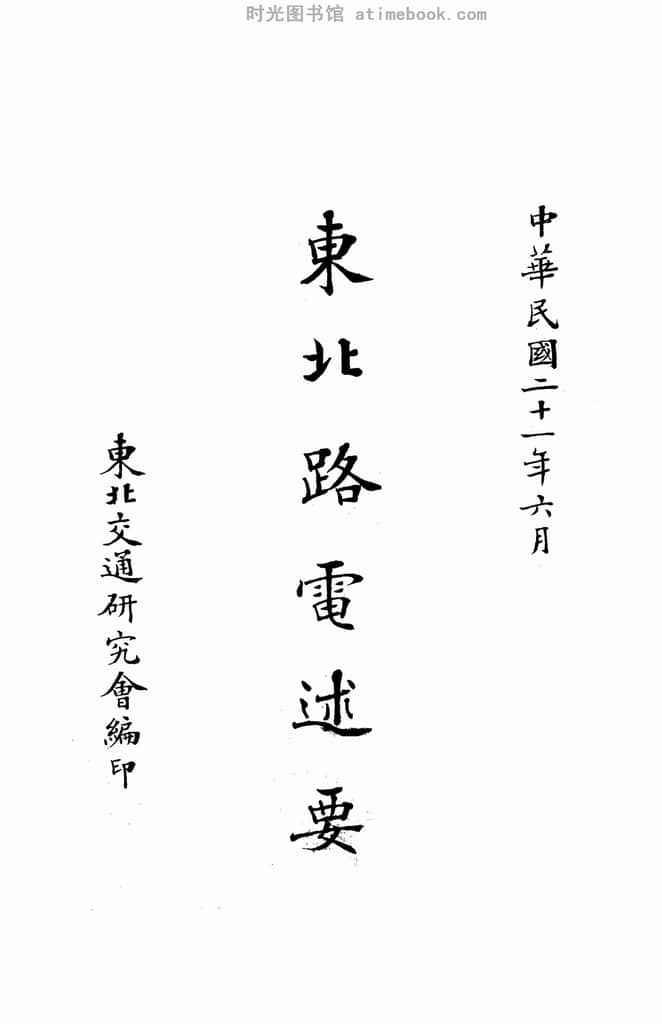 时光图书馆 atimebook.com
中華民國二十一年六月
東北路電述要
東北交通研究會編印